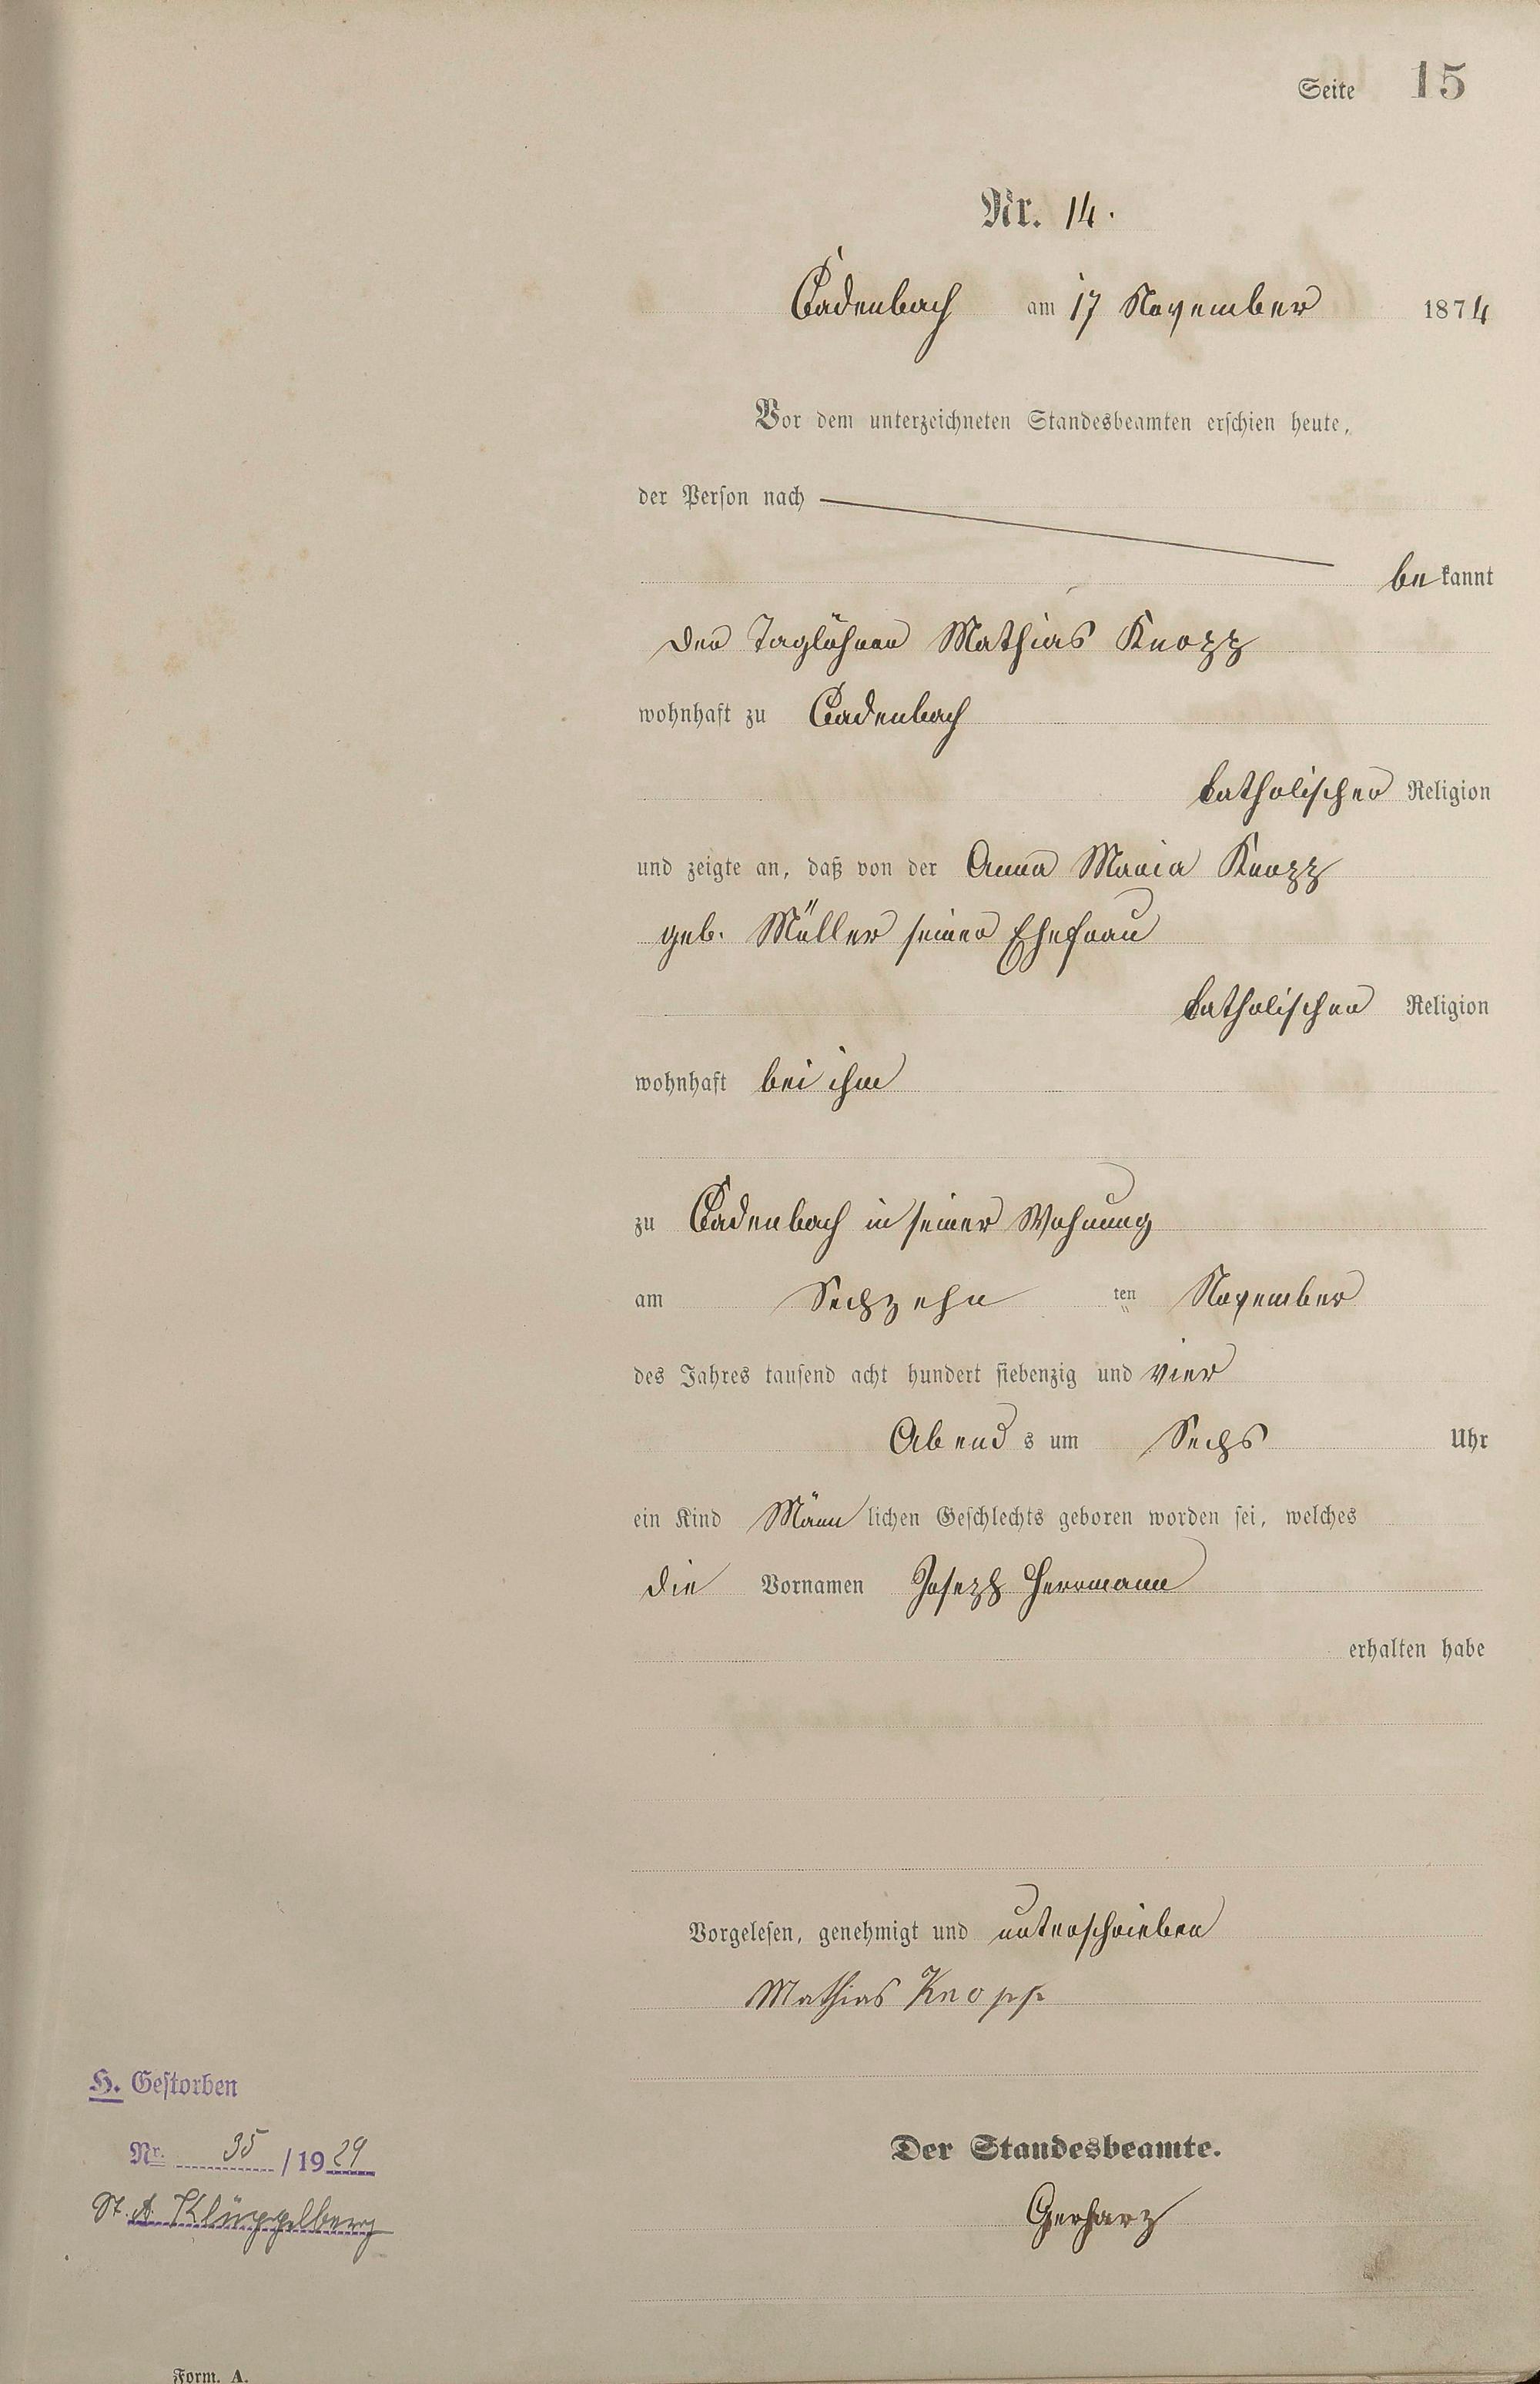 Seite 15
Nr. 14.
Cadenbach am 17 November 1874
Vor dem unterzeichneten Standesbeamten erschien heute,
der Person nach
bekannt
der Taglöhner Mathias Knopp
wohnhaft zu Cadenbach
katholischer Religion
und zeigte an, daß von der Anna Maria Knopp
geb. Müller seiner Ehefrau
katholischer Religion
wohnhaft bei ihm
zu Cadenbach in seiner Wohnung
am Sechzehn ten November
des Jahres tausend acht hundert siebenzig und vier
Abends um Sechs Uhr
ein Kind Männlichen Geschlechts geboren worden sei, welches
die Vornamen Joseph Herrmann
erhalten habe
Vorgelesen, genehmigt und unterschrieben
Mathias Knopp
Der Standesbeamte.
Gerharz
H. Gestorben
Nr. 35 / 1929
St. A. Klüppelberg
Form. A.